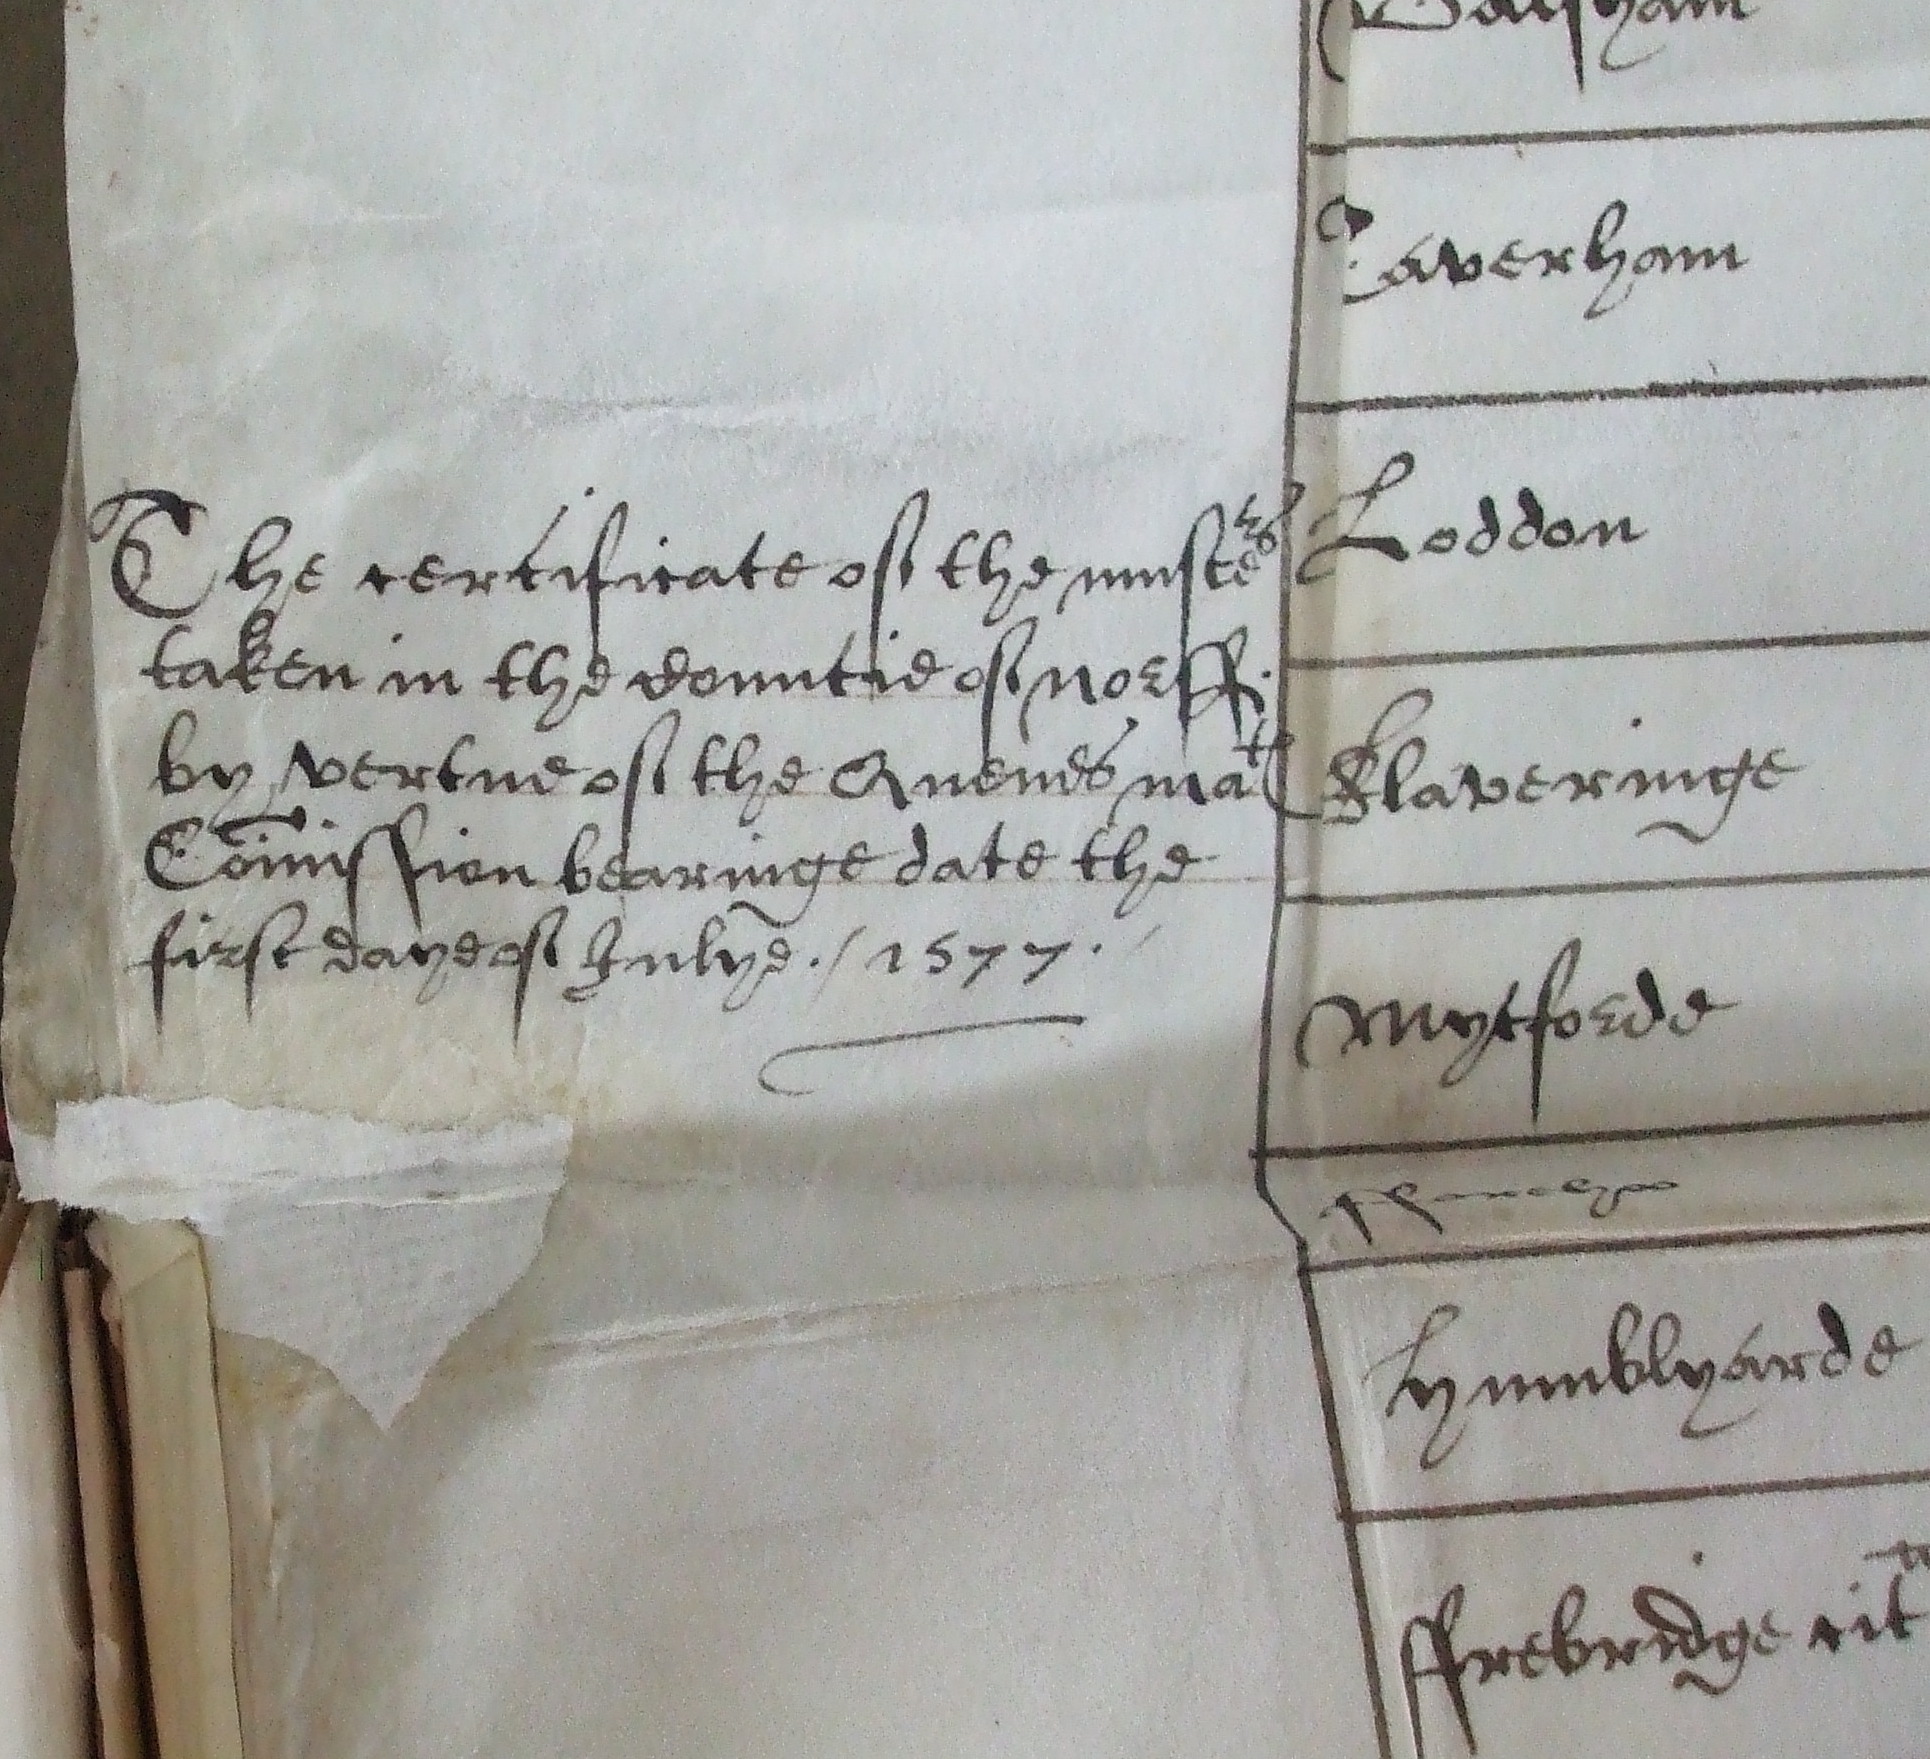 The certificate of the musters
taken in the Countie of Norff.
by vertue of the Quenes matℯ
Comission bearinge date the
first daye of Julye ./ 1577 ·
Walsham
Taverham
Loddon
Klaveringe
Mytforde
Lynmblyarde
ffrebridge cit